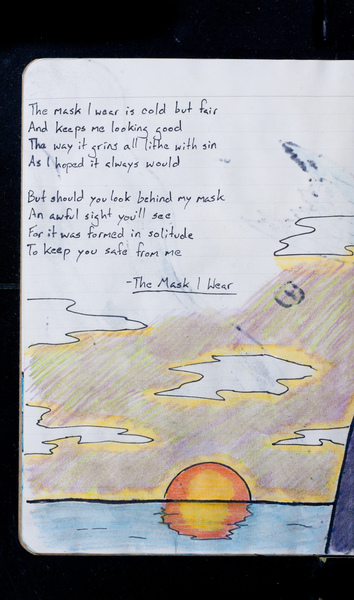 The mask I wear is cold but fair
And keeps me looking good
The way it grins all lithe with sin
As I hoped it always would
But should you look behind my mask
An awful sight you'll see
For it was formed in solitude
To keep you safe from me
-The Mask I Wear